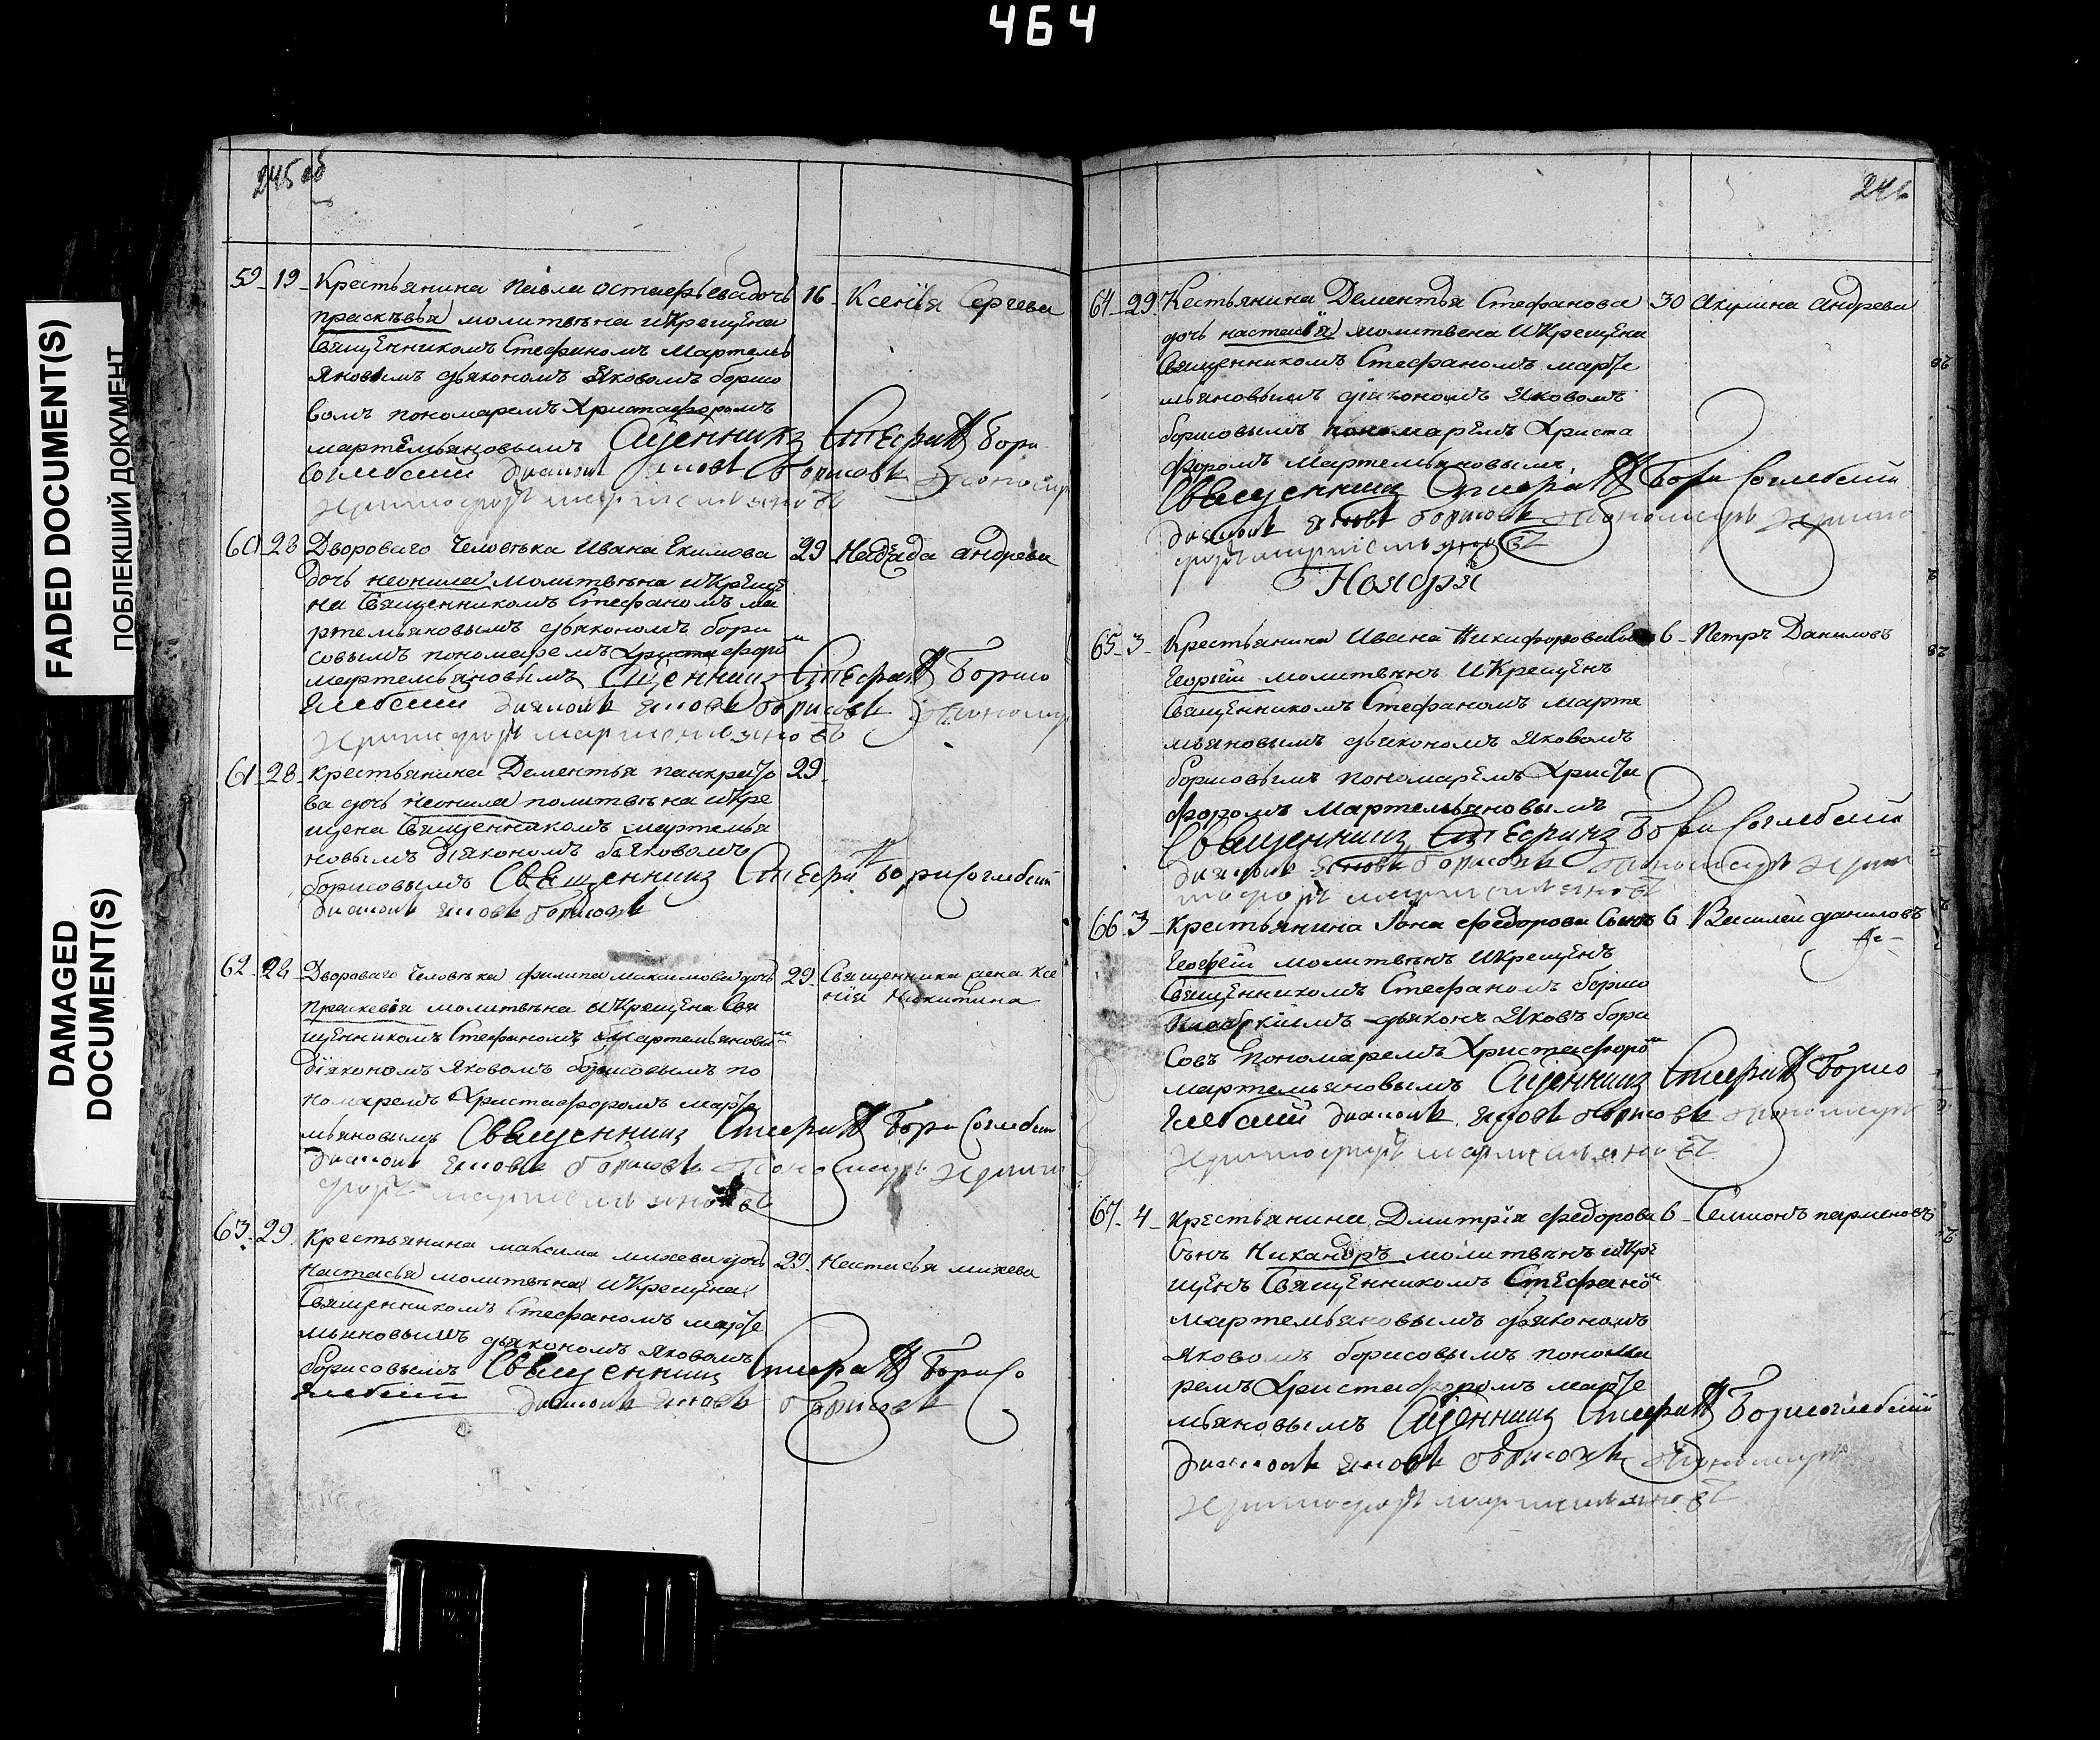 464
FADED DOCUMENT(S)
ПОБЛЕКШИЙ ДОКУМЕНТ
DAMAGED
DOCUMENT(S)
245 об
59 19 Крестьянина павла остафьева дочь 16 Ксенья Сергеева
праскѣвья молитвѣна и Крещена
Священникомъ Стефаномъ Мартемь
яновымъ дьякономъ Яковомъ борисо
вомъ пономаремъ Христафоромъ
мартемьяновымъ Сщенникъ Стефанъ Бори
соглебский диаконъ яковъ борисовъ пономарь
христофоръ мартемьяновъ
60 23 Двороваго человѣка Ивана Екимова 29 Надежда андреева
дочь неонила молитвѣна и Креще
на Священникомъ Стефаномъ ма
ртемьяновымъ дьякономъ бори
совымъ пономаремъ Христофоро м
мартемьяновымъ Сщенникъ Стефанъ Борисо
глебский диаконъ яковъ борисовъ пономарь
христофоръ мартемьяновъ
61 28 крестьянина Дементья панкрато 29
ва дочь неонила молитвѣна и Кре
щена Священникомъ мартемья
новымъ дiякономъ яковомъ
борисовымъ Священникъ Стефанъ борисоглебский
диаконъ яковъ борисовъ
62 28 Двороваго человѣка филипа макаимова дочь 29 Священника жена Ксе
нiя Никитина
праскевiя молитвѣна и Крещена Свя
щенникомъ Стефаномъ мартемьяновы м
дiякономъ яковомъ борисовымъ по
номаремъ Христафоромъ марте
мьяновымъ Священникъ Стефанъ Борисоглебский
диаконъ яковъ борисовъ пономарь христо
форъ мартемьяновъ
63 29 Крестьянина максима михева дочь 29 Настасья михева
Настасья молитвѣна и Крещена
Священникомъ Стефаномъ марте
мьяновымъ дьякономъ яковомъ
борисовымъ Священникъ Стефанъ Борисо
глебский диаконъ яковъ борисовъ
246
64 29 Кестьянина Дементья Стефанова 30 Акулина андреева
дочь настасiя молитвена и Крещена
Священникомъ Стефаномъ марте
мьяновымъ дiякономъ Яковомъ
борисовымъ пономаремъ Христа
форомъ Мартемьяновымъ
Священникъ Стефанъ Борисоглебский
диаконъ яковъ борисовъ пономарь христо
форъ мартемьяновъ
Ноября
65 3 Крестьянина Ивана Никифорова Сынъ 6 Петръ Даниловъ
Георгiй молитвѣнъ и Крещенъ
Священникомъ Стефаномъ Марте
мьяновымъ дьякономъ Яковомъ
борисовымъ пономаремъ Христа
форомъ Мартемьяновымъ
Священникъ Стефанъ Борисоглебский
диаконъ яковъ борисовъ пономарь хри
стофоръ мартемьяновъ
66 3 крестьянина Iона федорова Сынъ 6 Василей даниловъ
Георгiй молитвѣнъ и Крещенъ
Священникомъ Стефаномъ борисо
глебскимъ дьяконъ Яковъ бори
совъ пономаремъ Христафоро м
мартемьяновымъ Сщенникъ Стефанъ Борисо
глебский диаконъ яковъ борисовъ пономарь
христофоръ мартемьяновъ
67 4 крестьянина Дмитрiя федорова 6 Семионъ парменовъ
сынъ Никандръ молитвѣнъ и Кре
щенъ Священникомъ Стефано м
мартемьяновымъ дьякономъ
яковомъ борисовымъ понома
ремъ Христафоромъ марте
мьяновымъ Сщенникъ Стефанъ Борисоглебский
диаконъ яковъ борисовъ пономарь
христофоръ мартемьяновъ